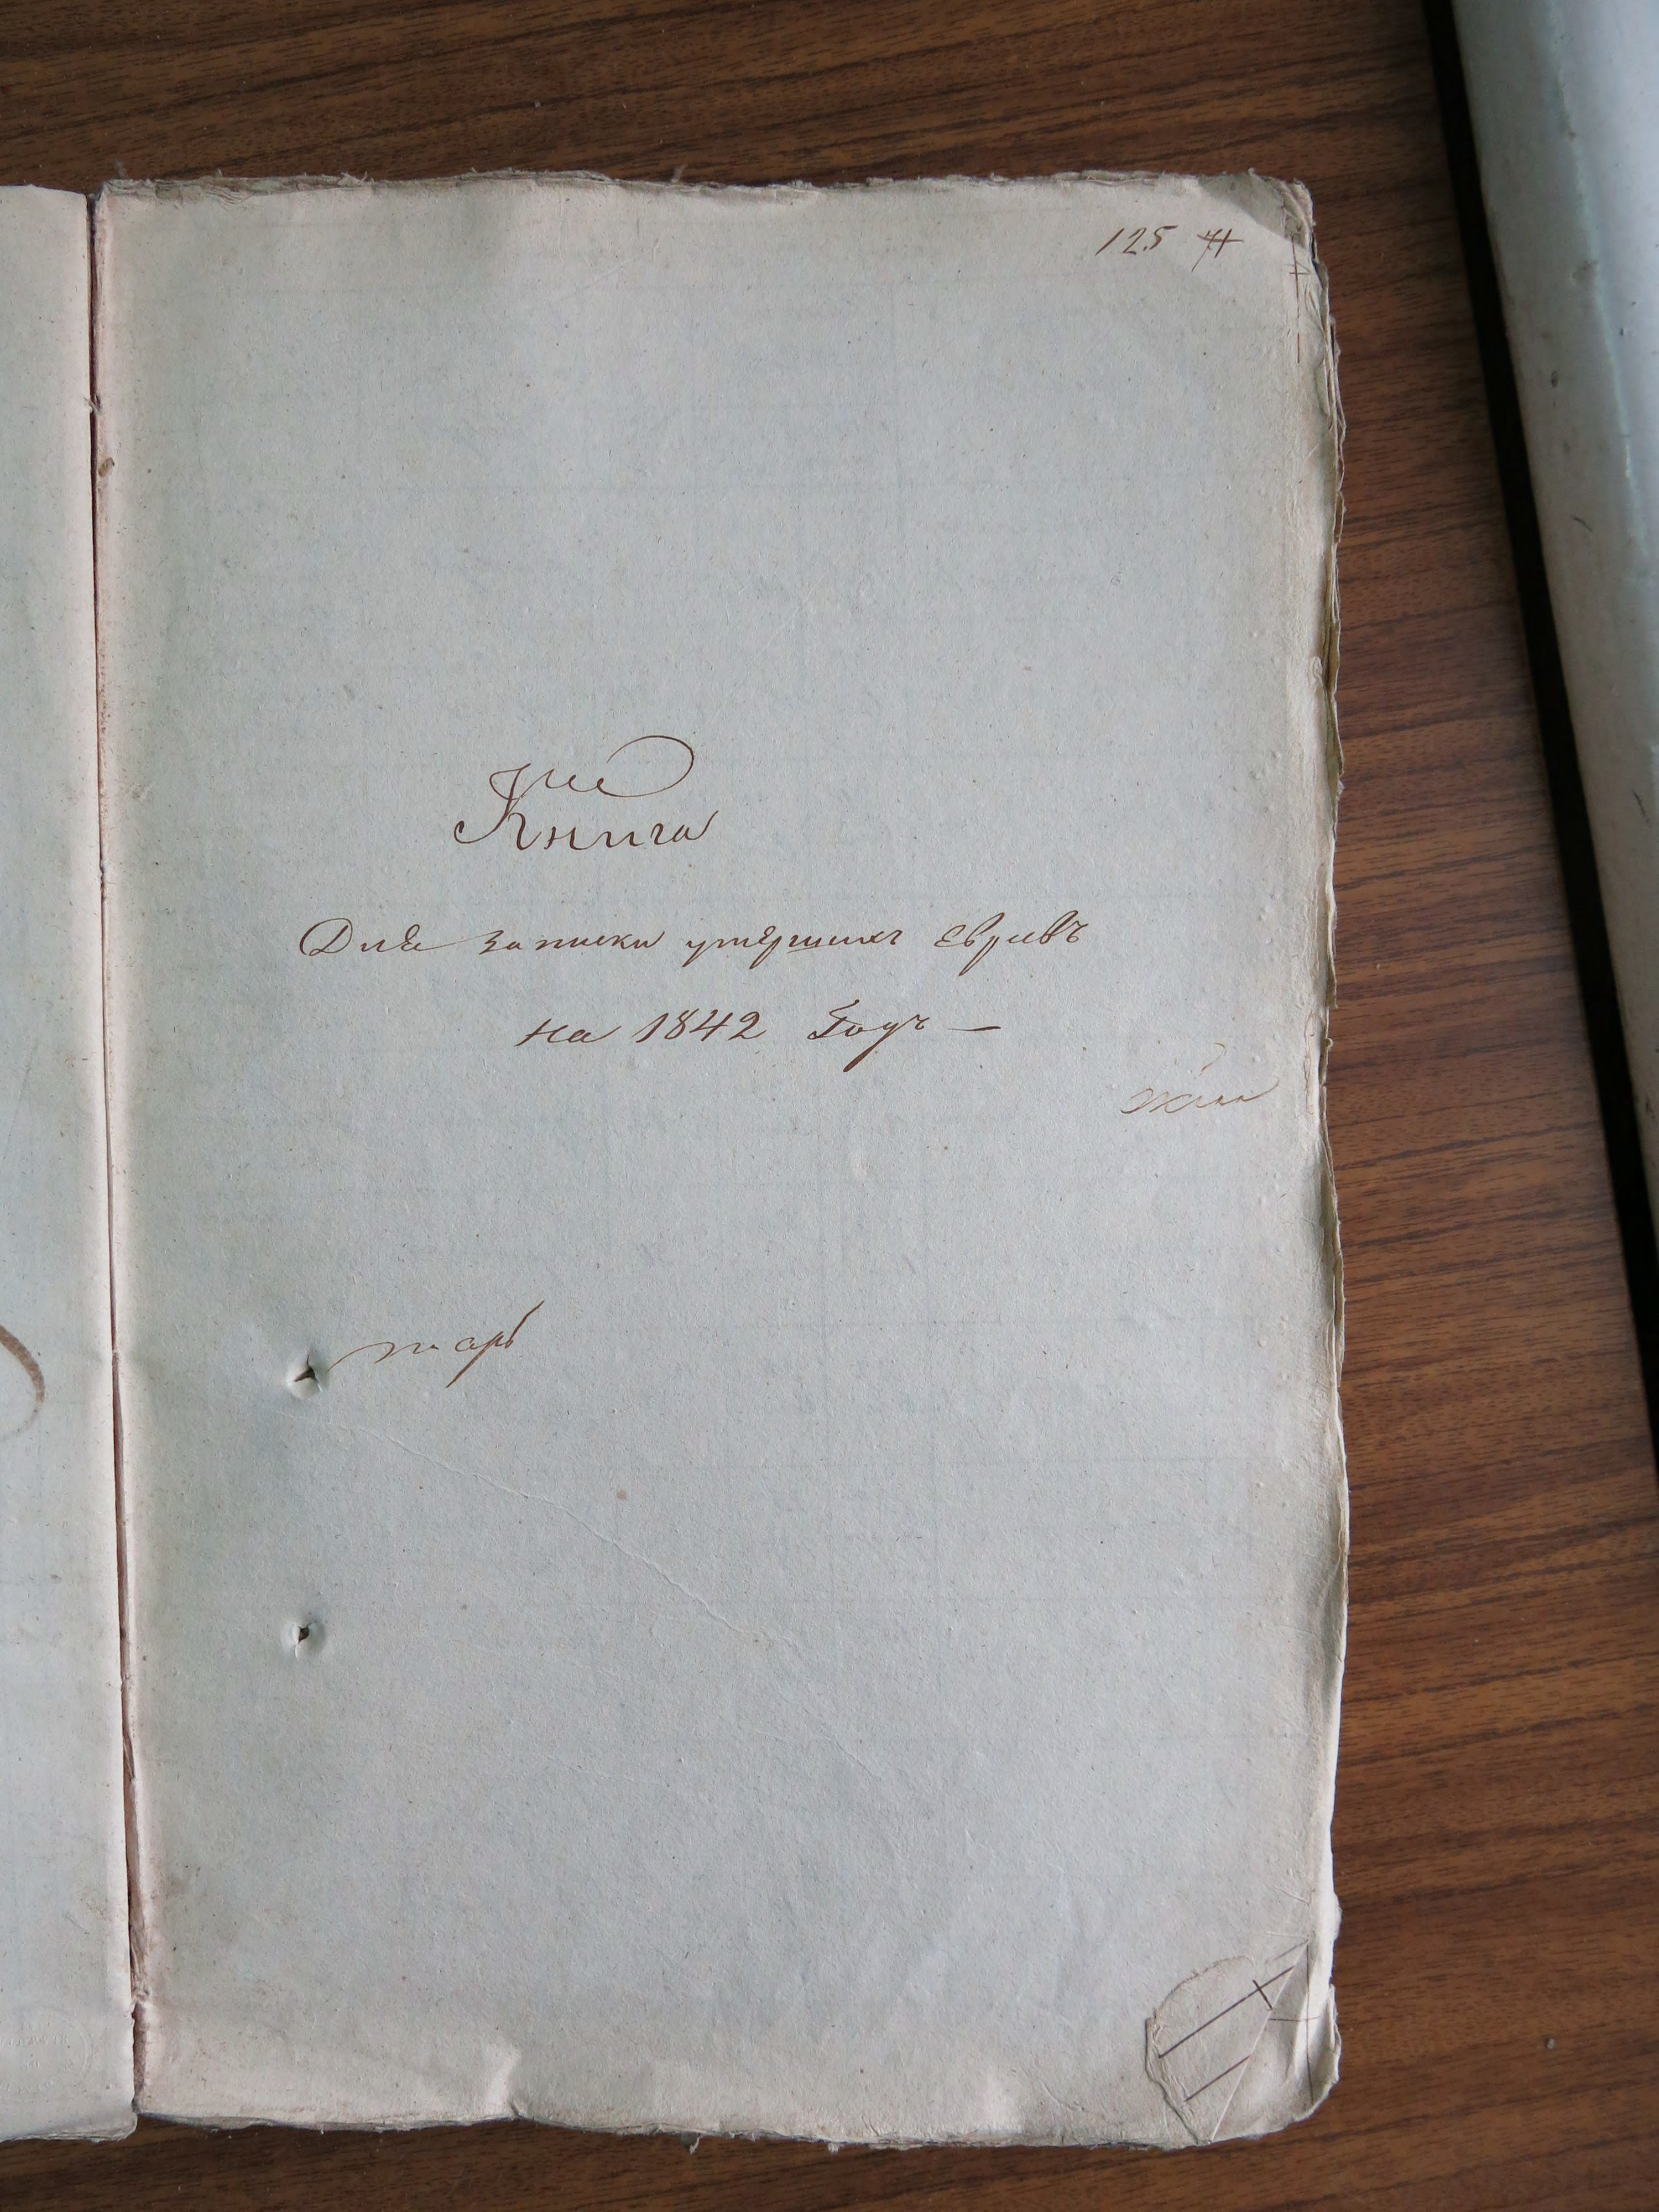 125
Книга
Для записки умершихъ евреевъ
на 1842 Годъ —
тарь